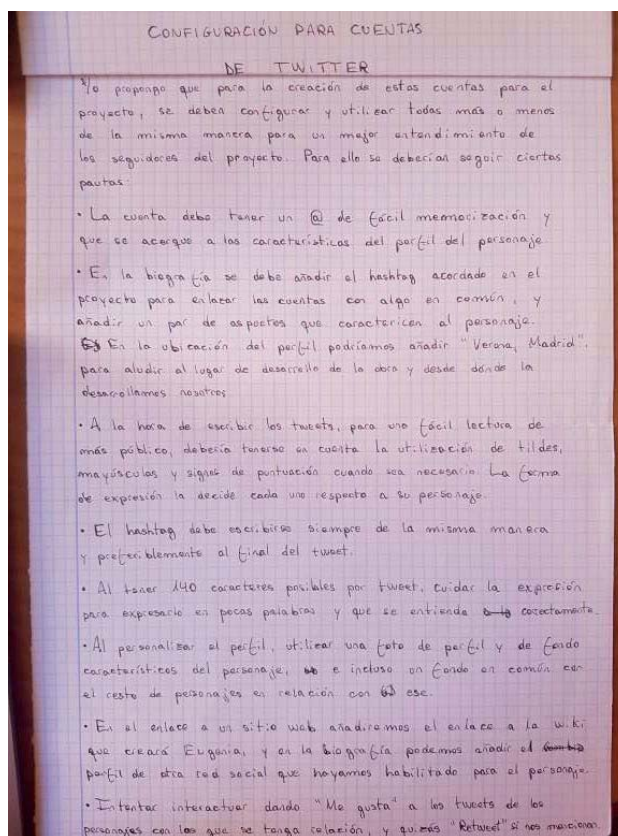 CONFIGURACIÓN PARA CUENTAS
DE TWITTER
Yo propongo que para la creación de estas cuentas para el
proyecto, se deben configurar y utilizar todas más o menos
de la misma manera para un mejor entendimiento de
los seguidores del proyecto. Para ello se deberían seguir ciertas
pautas:
· La cuenta debe tener un @ de fácil memorización y
que se acerque a las características del perfil del personaje.
· En la biografía se debe añadir el hashtag acordado en el
proyecto para enlazar las cuentas con algo en común, y
añadir un par de aspectos que caractericen al personaje.
En la ubicación del perfil podríamos añadir "Verona, Madrid".
para aludir al lugar de desarrollo de la obra y desde donde la
desarrollamos nosotros
· A la hora de escribir los tweets, para una fácil lectura de
más público, debería tenerse en cuenta la utilización de tildes,
mayúsculas y signos de puntuación cuando sea necesario. La forma
de expresión la decide cada uno respecto a su personaje.
· El hashtag debe escribirse siempre de la misma manera
y preferiblemente al final del tweet.
· Al tener 140 caracteres posibles por tweet, cuidar la expresión
para expresarlo en pocas palabras y que se entienda corectamente.
· Al personalizar el perfil, utilizar una foto de perfil y de fondo
característicos del personaje, e incluso un fondo en común con
el resto de personajes en relación con ese.
· En el enlace a un sitio web añadiremos el enlace a la wiki
que creará Eugenia, y en la biografía podemos añadir el
perfil de otra red social que hayamos habilitado para el personaje.
· Intentar interactuar dando "Me gusta" a los tweets de los
personajes con los que se tenga relación, y quizás "Retweet" si nos mencionan.